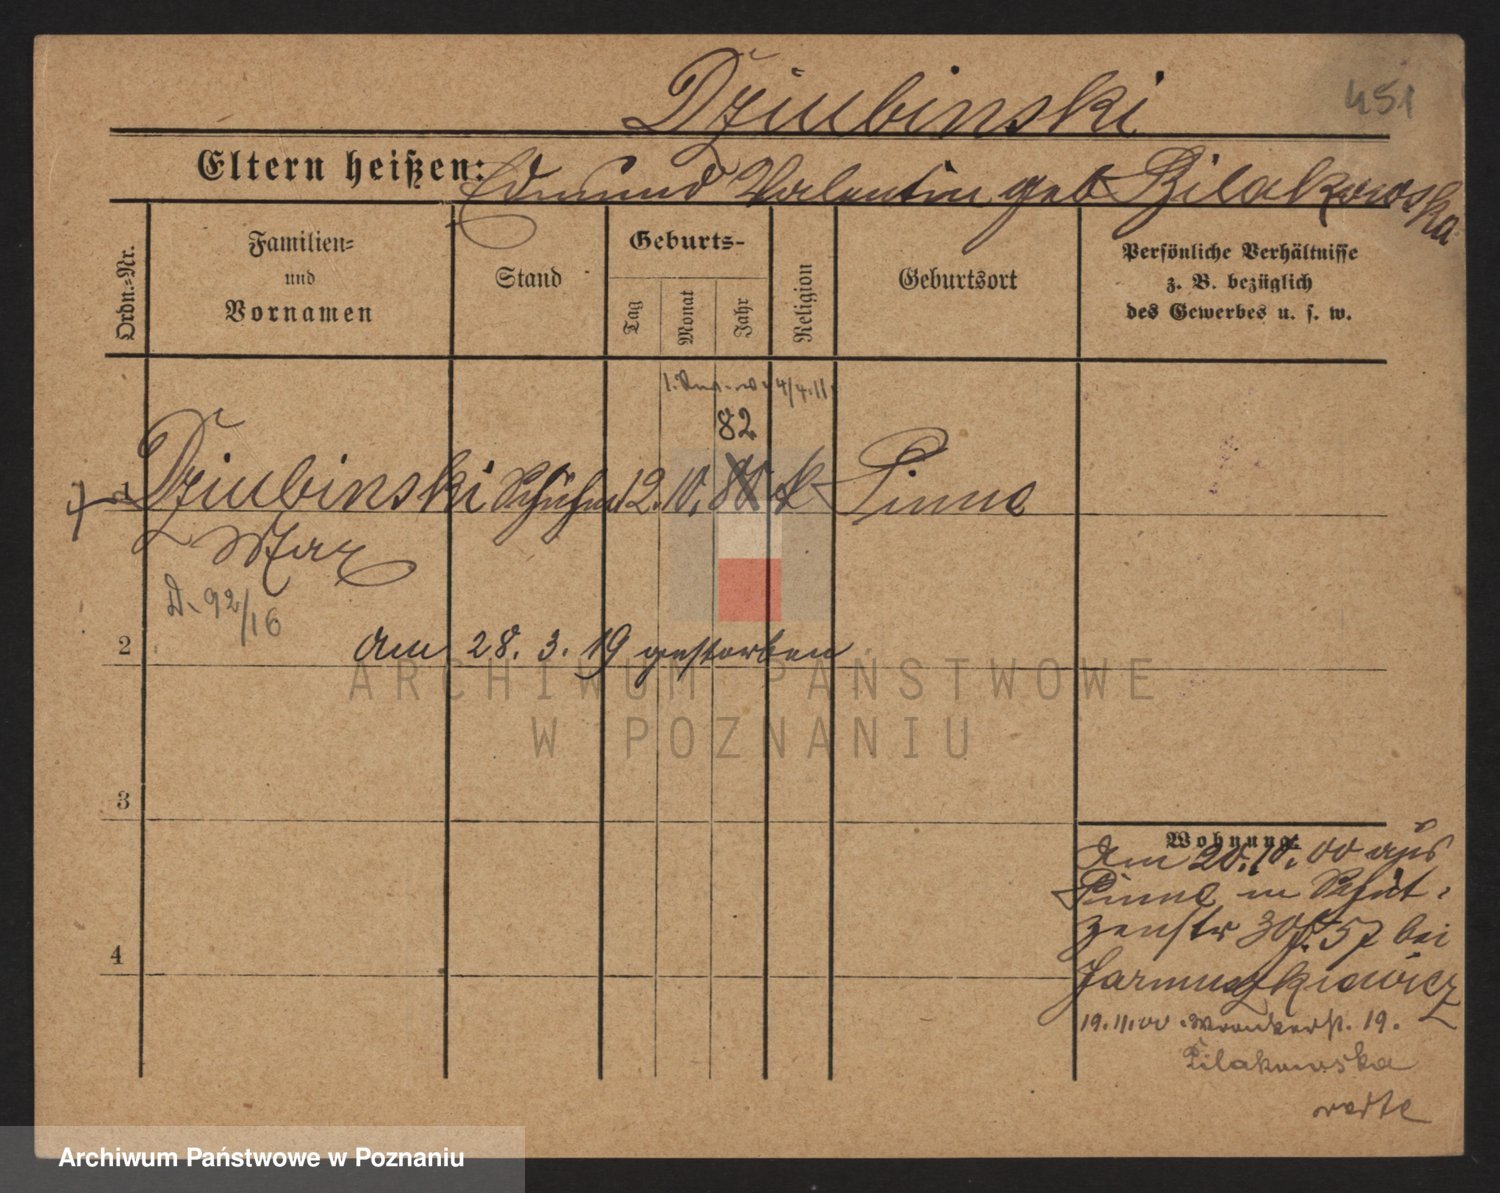 451
Dziubinski
Eltern heißen: Edmund Valentin geb Bilakowska
Ordn.-Nr.
Familien-
und
Vornamen
Stand
Geburts-
Tag
Monat
Jahr
Religion
Geburtsort
Persönliche Verhältnisse
z. B. bezüglich
des Gewerbes u. s. w.
4/4.11.
82
1 Dziubinski 12. 10. 80 k Pinne
Max
D. 92/16
2 am 28. 3. 19 gestorben
3
4
Wohnung:
Am 20.10.00 aus
Pinne in Schüt-
zenstr 30 57 bei
Jarmuszkiewicz
19.11.00 Wronkerst. 19.
Pilakowska
verte
ARCHIWUM PAŃSTWOWE
W POZNANIU
Archiwum Państwowe w Poznaniu